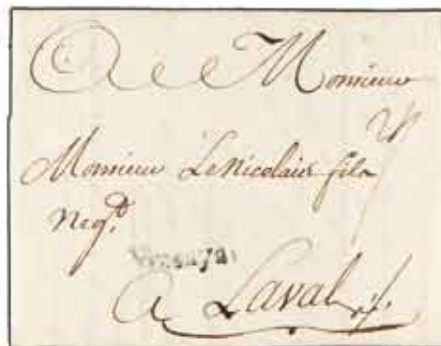 A Monsieur
Monsieur LeNicolais fils
Negt.
Vizcaya
A Laval